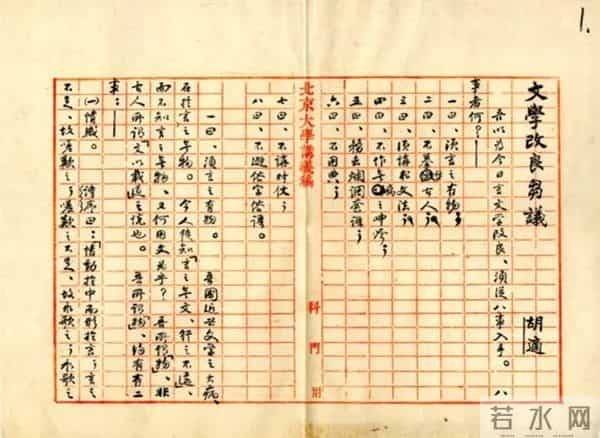 1.
文學改良芻議
胡適
吾以為今日言文學改良、須從八事入手。八
事者何?——
一曰、須言之有物。
二曰、不摹仿古人。
三曰、須講求文法。
四曰、不作無病之呻吟。
五曰、務去爛調套語。
六曰、不用典。
北京大學講義稿
科門
七曰、不講對仗。
八曰、不避俗字俗語。
一曰、須言之有物。吾國近世文學之大病、
在於言之無物。今人徒知「言之無文、行之不遠」、
而不知言之無物、又何用文為乎?吾所謂「物」、非
古人所謂「文以載道」之說也。吾所謂「物」、約有二
事:——
(一)情感。詩序曰:「情動於中而形於言;言之
不足、故嗟歎之;嗟歎之不足、故永歌之;永歌之
若水网